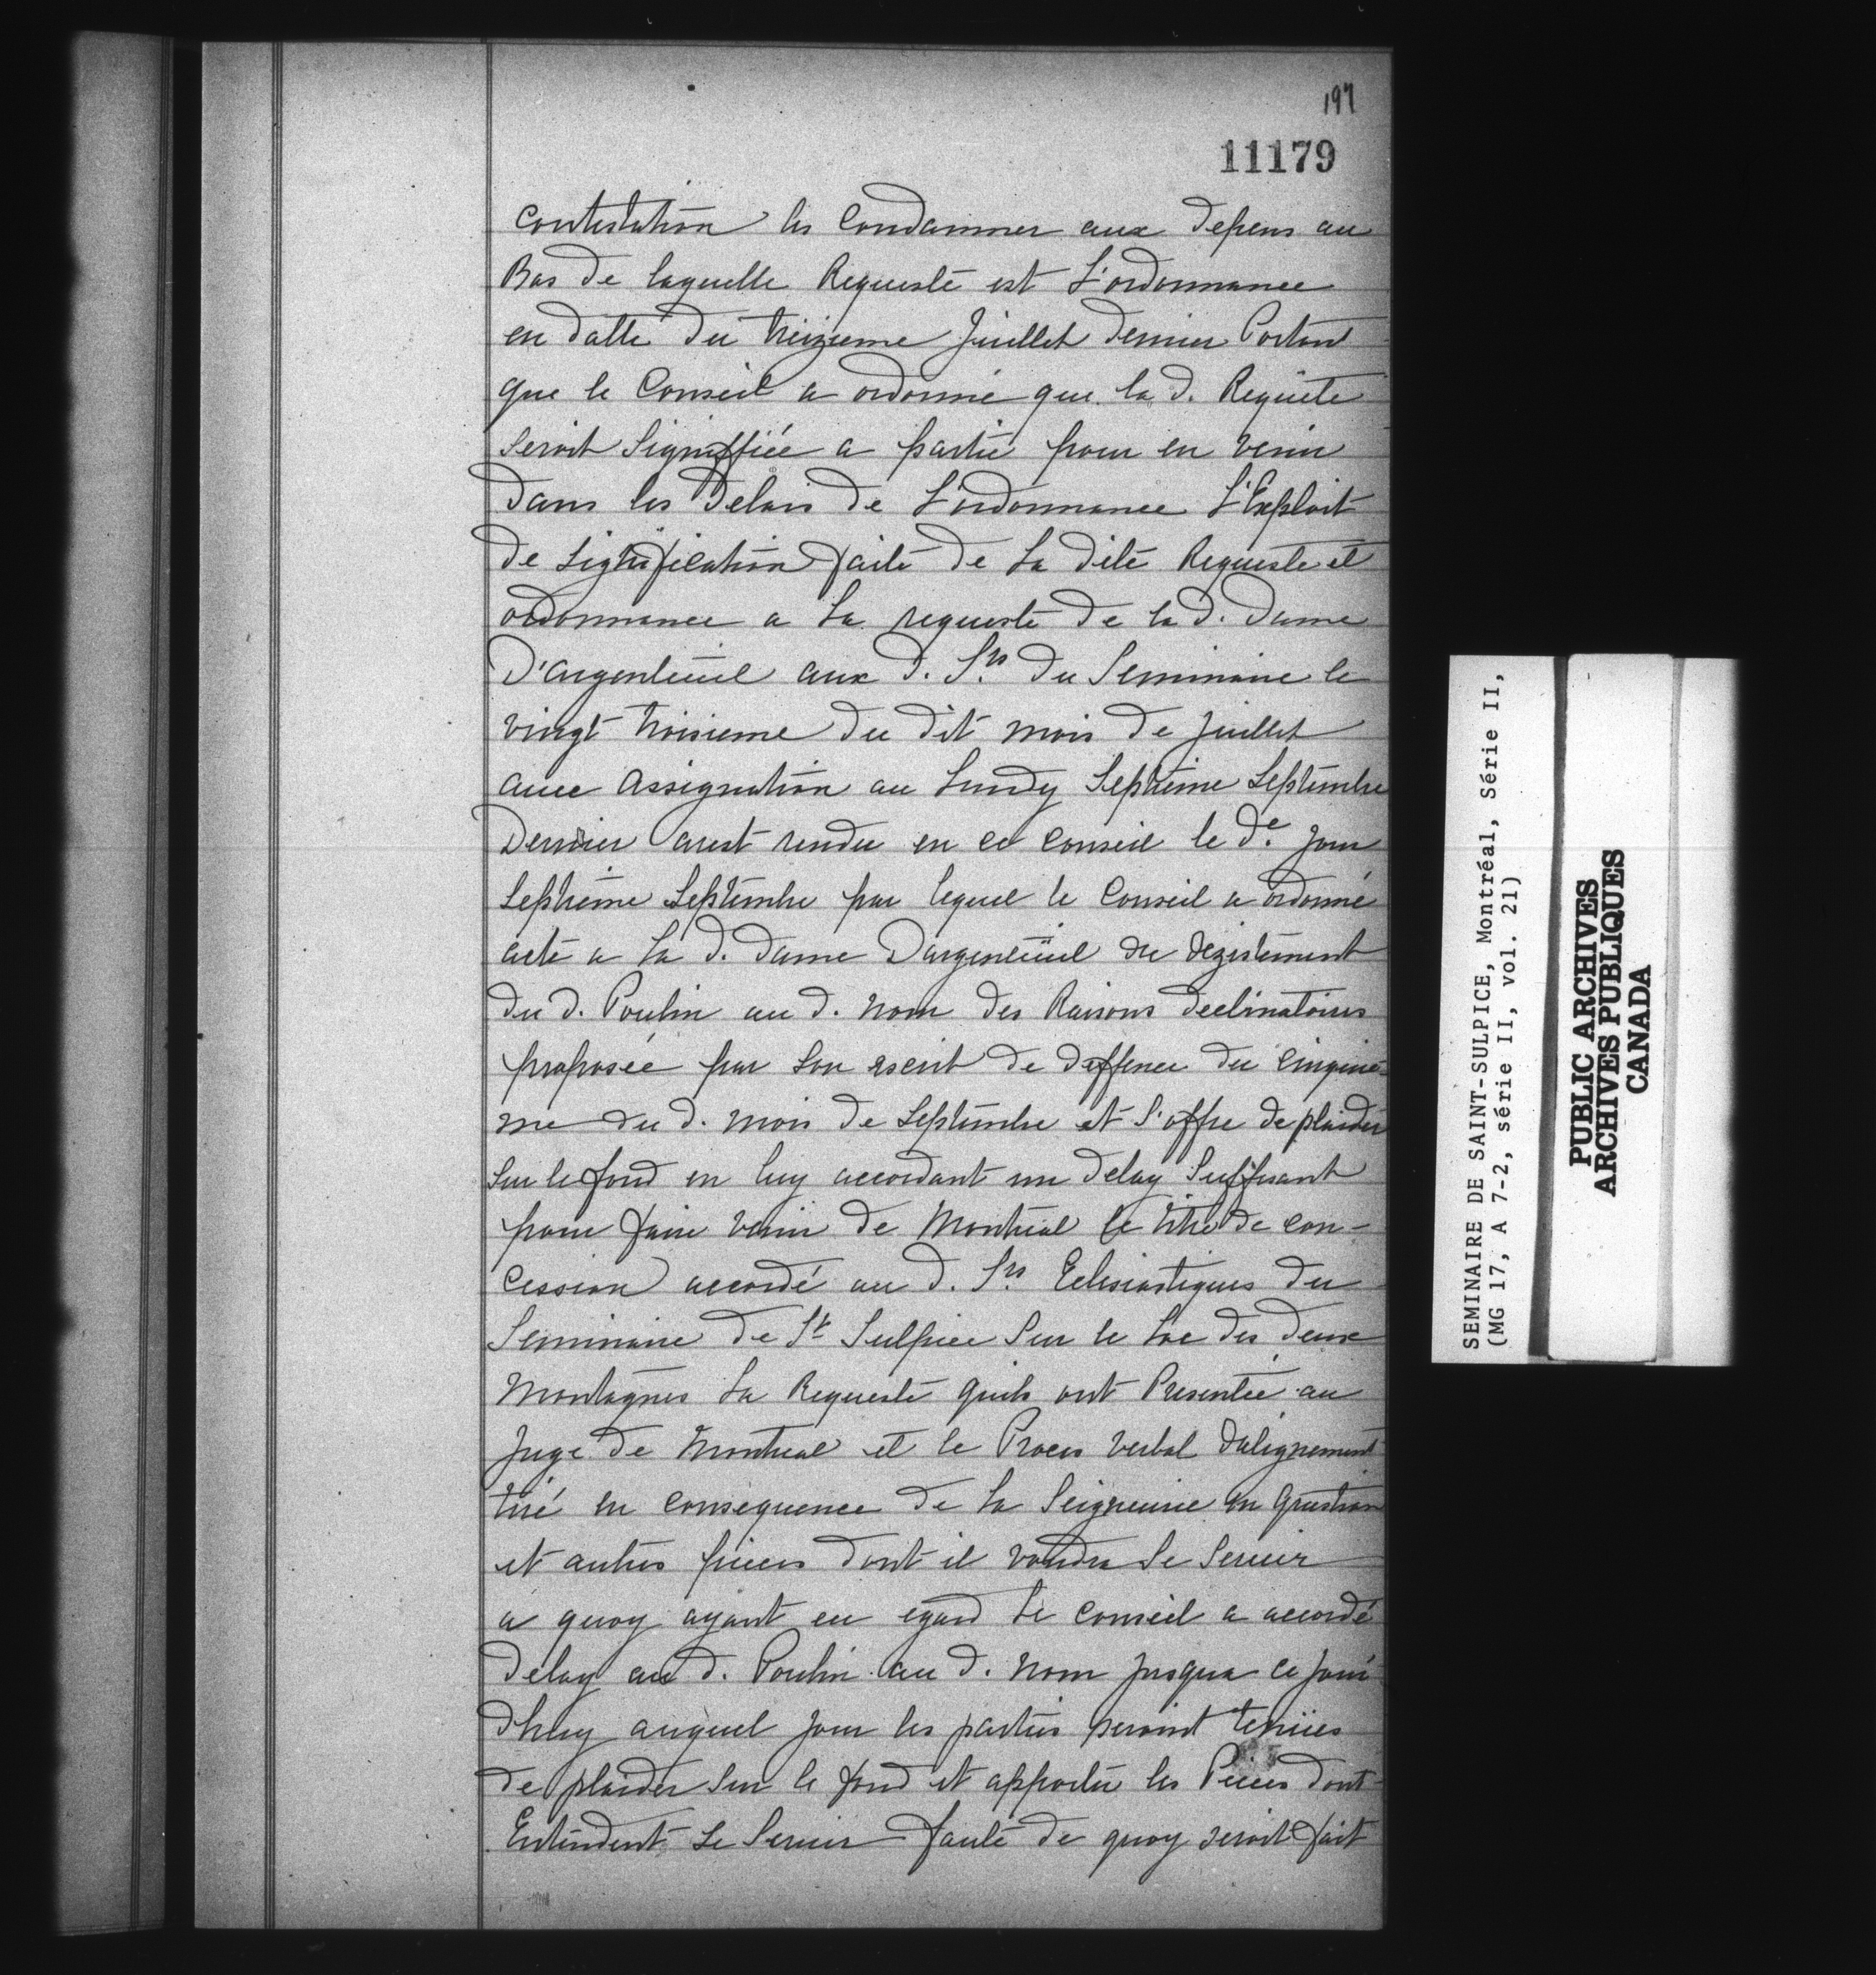 197
11179
contestation les Condamner aux depens au
Bas de laquelle Requeste est L'ordonnance
en datte du treizieme Juillet dernier Portant
que le Conseil a ordonné que la d. Requête
seroit Signiffiée a partie pour en venir
dans les delais de L'ordonnance L'Exploit
de Signification faite de La dite Requeste et
ordonnance a La requeste de la d. Dame
D'argenteuil aux d. Srs du Seminaire le
vingt troisieme du dit mois de Juillet
avec assignation au Lundy Septième Septembre
Dernier arest rendu en ce Conseil le de. jour
Septième Septembre par lequel le Conseil a ordonné
acte a La d. Dame Dargenteüil du dezistement
du d. Poulin au d. nom des Raisons declinatoires
proposée par son escrit de deffence du cinquie-
me du d. mois de Septembre et L'offre de plaider
sur le fond en luy accordant un delay Suffisant
pour faire venir de Montreal le titre de con-
cession accordé au d. Srs Eclesiastiques du
Seminaire de St Sulpice Sur le Lac des deux
Montagnes La Requeste quils ont Presentée au
Juge de Montreal et le Proces verbal dalignement
tiré en consequence de La Seigneurie en question
et autres pieces dont il voudra Se Servir
a quoy ayant eu egard Le Conseil a accordé
delay au d. Poulin au d. nom jusqua ce jour
dhuy auquel jour les parties seroint tenües
de plaider Sur le fond et apporter les Pieces dont
Entendent Se Servir faute de quoy seroit fait
SEMINAIRE DE SAINT-SULPICE, Montréal, Série II,
(MG 17, A 7-2, série II, vol. 21)
PUBLIC ARCHIVES
ARCHIVES PUBLIQUES
CANADA